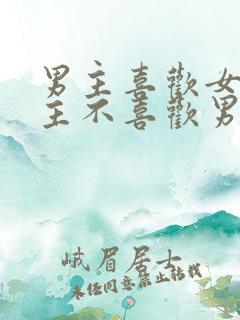 男主喜歡女
主不喜歡男
峨眉居士
未经同意禁止转载